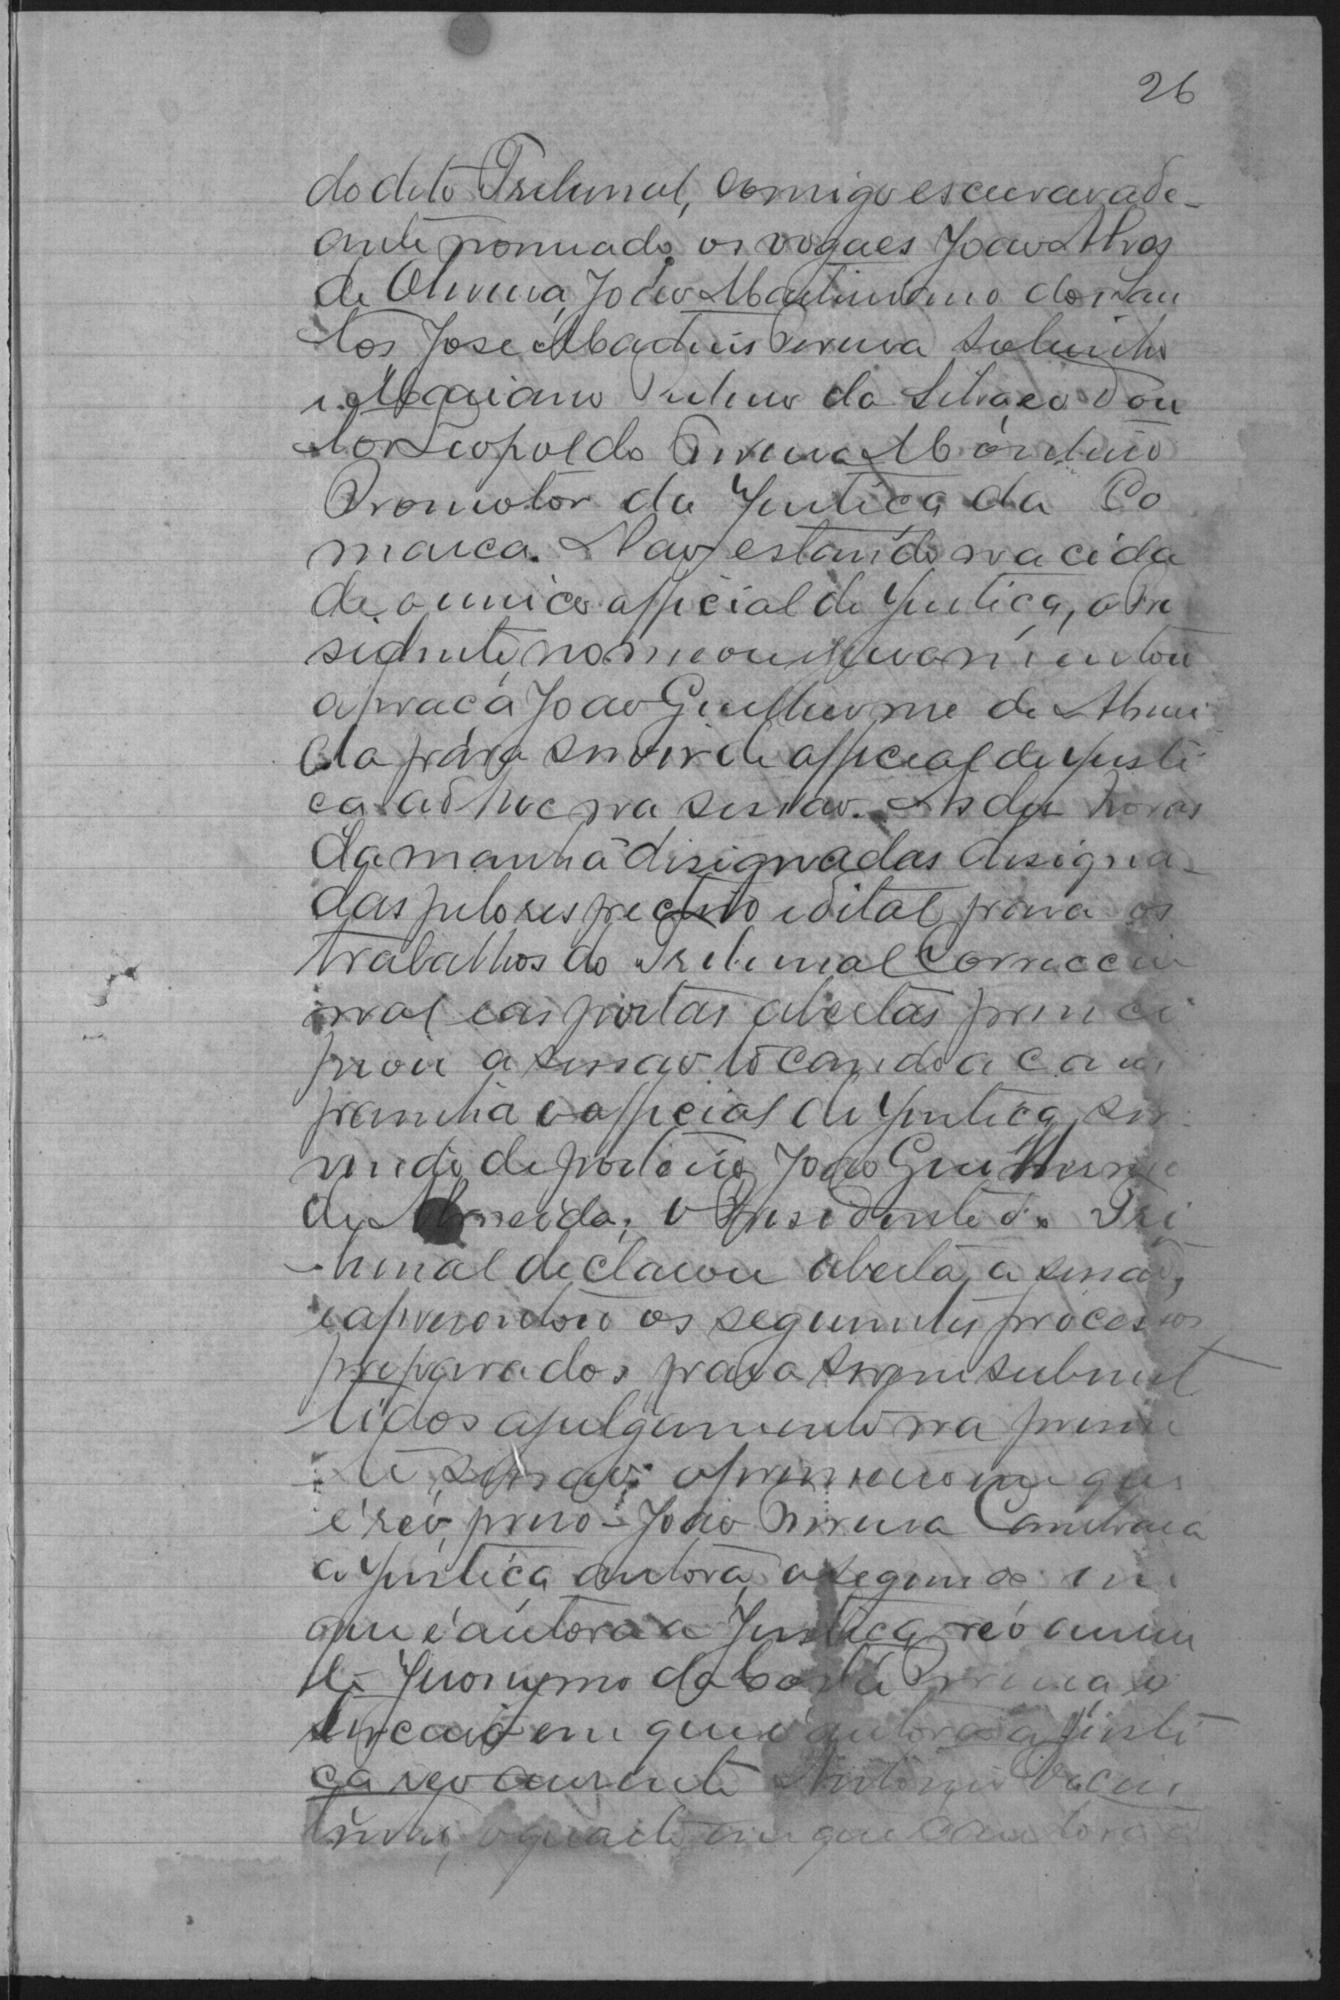 26
do dito Tribunal, comigo escrivão ade-
ante nomeado, os vogaes João Alves
de Oliveira, João Martiniano dos San
tos José Matheus Pereira Sobrinho
e Mariano Pinheiro da Silva e o Dou
tor Leopoldo Pereira Monteiro
Promotor da Justiça da Co
marca. Não estando na cida
de o unico official de Justiça, o Pre
sidente, nomeou e juramentou
a praça João Guilherme de Almei
da para servir de official de Justi
ça ad hoc na sessão. As dez horas
da manhã disignadas disigna-
das pelo respectivo edital para os
trabalhos do Tribunal Correccio
nal e as portas abertas princi
piou a sessão tocando a cam
painha o official de Justiça, ser
vindo de porteiro João Guilherme
de Almeida; o Presidente do Tri
bunal declarou aberta a sessão,
e apresentou os seguintes processos
preparados para serem submet
tidos a julgamento na presen
te sessão: o primeiro em que
é réo preso - João Pereira
a Justiça autora, o segundo em
que é autora a Justiça réo ausen
te Jeronymo da Costa Pereira o
terceiro em que é autora a Justi
ça reo ausente Antonio
o quarto em que é autora a